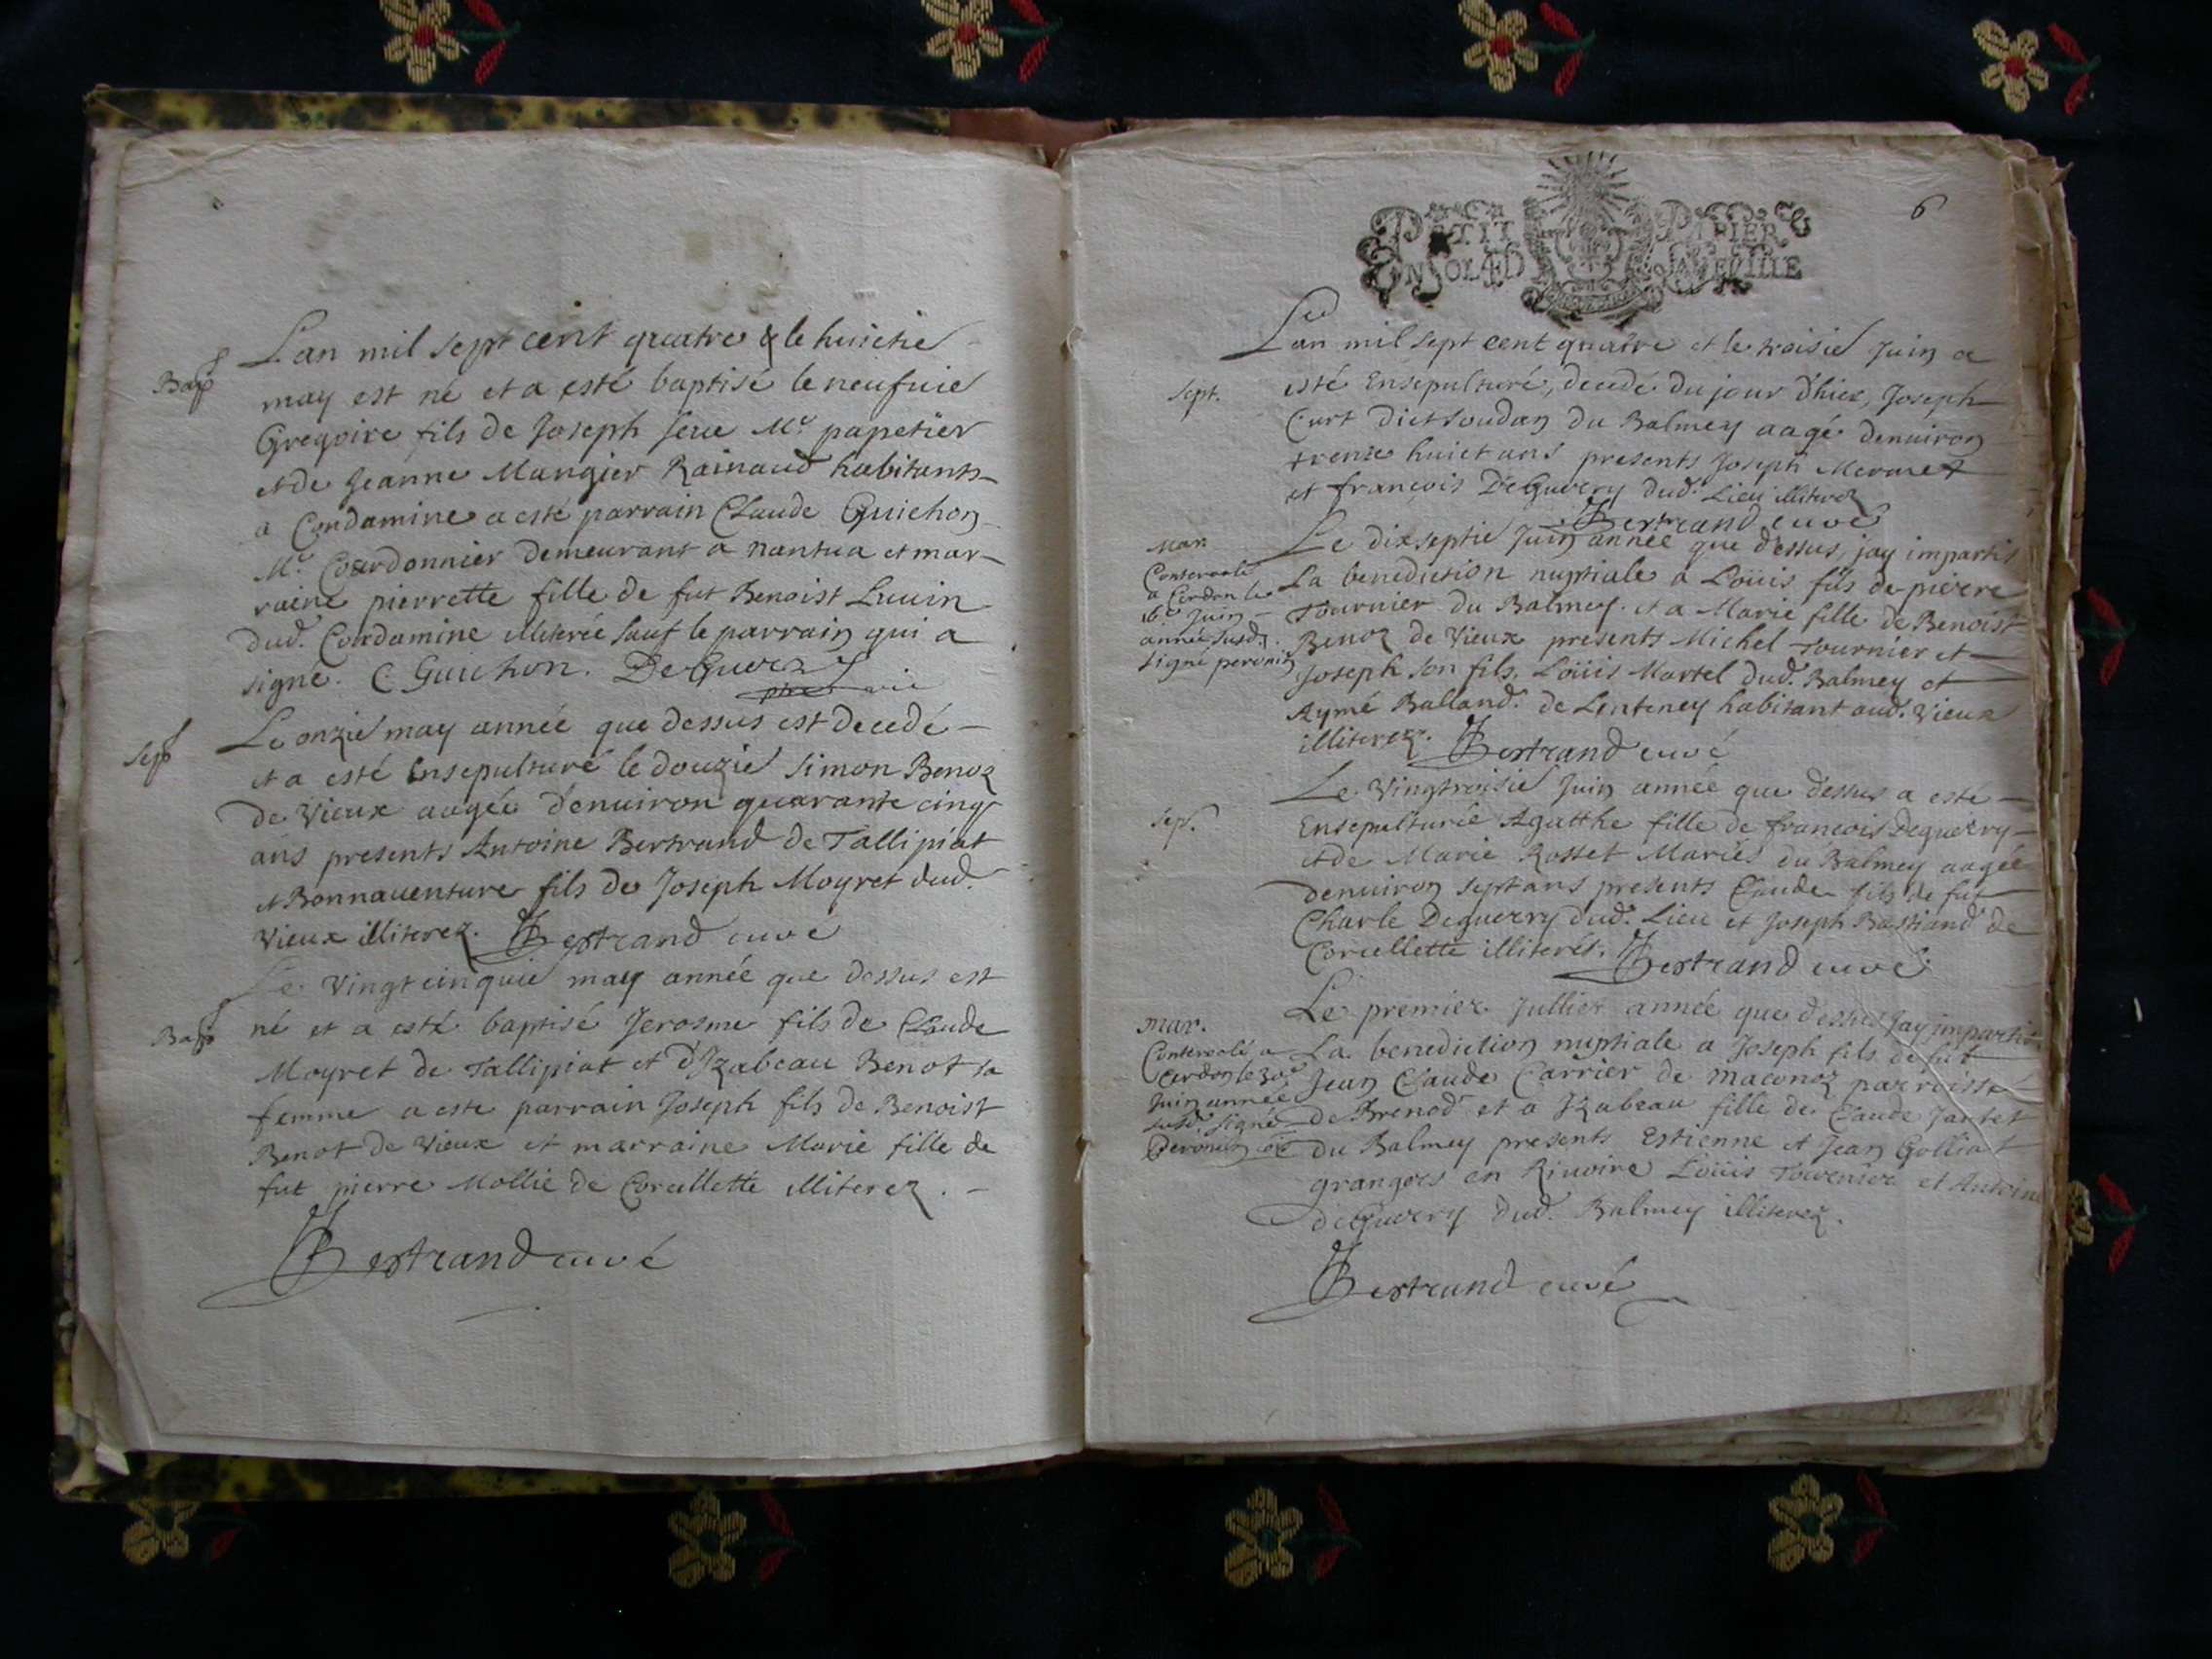 Bap
L'an mil sept cent quatre & le huictie
may est né et a esté baptisé le neufuie
Gregoire fils de Joseph Seue Mr. papetier
et de Jeanne Mangier Rainaud habitants
a Condamine a esté parrain Claude Guichon
Mr. Cordonnier demeurant a nantua et mar-
raine pierrette fille de fut Benoist Luuin
dud. Condamine illiterée sauf le parrain qui a
signé. C Guichon. DeGuerry
Sep
Le onzie may année que dessus est decedé
et a esté ensepulturé le douzie Simon Benoz
de Vieux aagée d'enuiron quarante cinq
ans presents Antoine Bertrand de Tallipiat
et Bonnauenture fils de Joseph Moyret dud.
Vieux illiterez. Bertrand curé
Bap
Le Vingt cinquie may année que dessus est
né et a esté baptisé Jerosme fils de Claude
Moyret de Tallipiat et d'Izabeau Benot sa
femme a esté parrain Joseph fils de Benoist
Benot de Vieux et marraine Marie fille de
fut pierre Mollie de Corcellette illiterez.
Bertrand curé
6
PETIT PAPIER
EN SOL LA FEUILLE
L'an mil sept cent quatre et le troisie Juin a
Sept.
esté Ensepulturé, decedé du jour d'hier, Joseph
Curt dict Soudan du Balmey aagé denuiron
trente huict ans presents Joseph Mermet
et françois DeGuerry dud. Lieu illiterez
Bertrand curé
Mar.
Conterolé
a Cerdon le
16e Juin
année susd.
signé peronin
Le dixseptie Juin année que d'essus, jay impartis
La benediction nuptiale a Loüis fils de pierre
Tournier du Balmey. et a Marie fille de Benoist
Benoz de Vieux presents Michel Tournier et
Joseph son fils, Loüis Martel dud. Balmey et
Aymé Balland. de Lenteney habitant aud. Vieux
illiterez. Bertrand curé
Sep.
Le Vingtroisie Juin année que dessus a esté
Ensepulturée Agatthe fille de francois Deguerry
et de Marie Rosset Mariés du Balmey aagée
denuiron sept ans presents Claude fils de fut
Charle Deguerry dud. Lieu et Joseph Bastiand de
Corcellette illiterés. Bertrand curé
mar.
Conterolé a
Cerdon le 30e
Juin année
susd. signé
Peronin
Le premier Jullier année que dessus jay impartis
La benediction nuptiale a Joseph fils de fut
Jean Claude Carrier de Maconoz parroisse
de Brenod et a Izabeau fille de Claude Jantet
du Balmey presents Estienne et Jean Golliat
grangers en Riuoire Loüis Tournier et Antoine
deGuerry dud. Balmey illiterez.
Bertrand curé